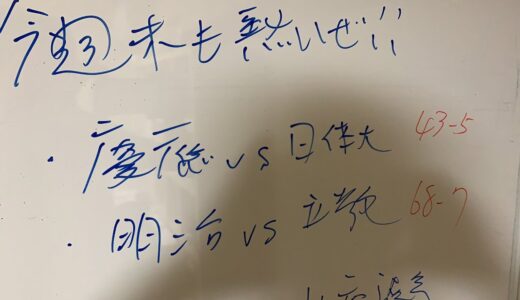 今週末も熱いぜ!!
・慶應 vs 日体大 43-5
・明治 vs 立教 68-7